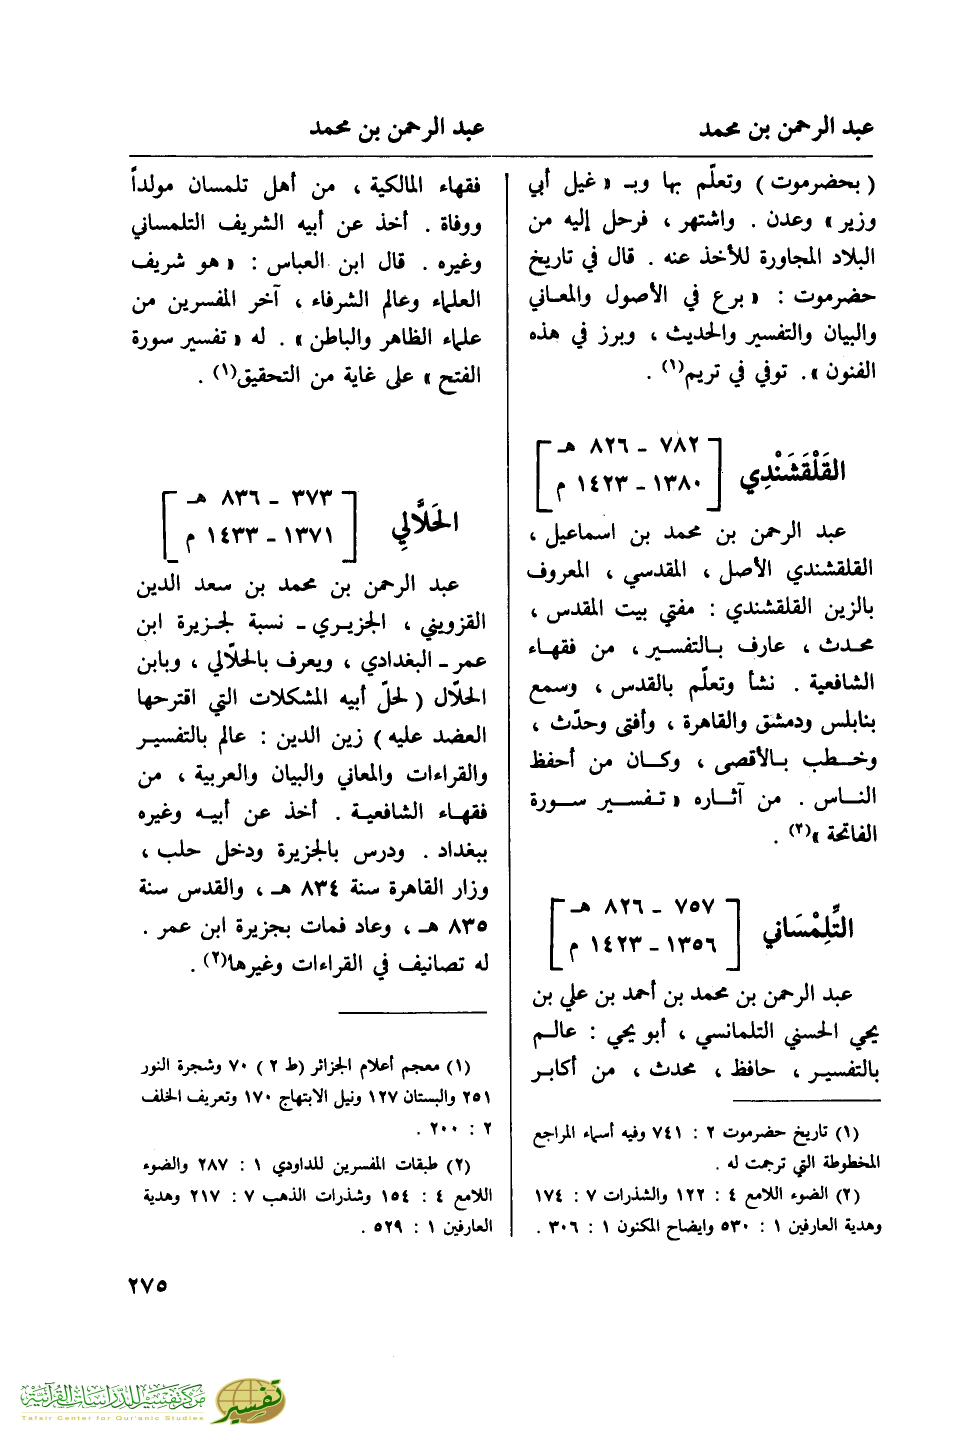 عبد الرحمن بن محمد
عبد الرحمن بن محمد
( بحضرموت ) وتعلّم بها وبـ « غيل أبي
وزير » وعدن . واشتهر ، فرحل إليه من
البلاد المجاورة للأخذ عنه . قال في تاريخ
حضرموت : « برع في الأصول والمعاني
والبيان والتفسير والحديث ، وبرز في هذه
الفنون » . توفي في تريم(١) .
القَلْقَشَنْدِي
٧٨٢ - ٨٢٦ هـ
١٣٨٠ - ١٤٢٣ م
عبد الرحمن بن محمد بن اسماعيل ،
القلقشندي الأصل ، المقدسي ، المعروف
بالزين القلقشندي : مفتي بيت المقدس ،
محدث ، عارف بالتفسير ، من فقهاء
الشافعية . نشأ وتعلّم بالقدس ، وسمع
بنابلس ودمشق والقاهرة ، وأفتى وحدّث ،
وخطب بالأقصى ، وكان من أحفظ
الناس . من آثاره « تفسير سورة
الفاتحة »(٢) .
التِّلِمْسَاني
٧٥٧ - ٨٢٦ هـ
١٣٥٦ - ١٤٢٣ م
عبد الرحمن بن محمد بن أحمد بن علي بن
يحي الحسني التلمانسي ، أبو يحي : عالم
بالتفسير ، حافظ ، محدث ، من أكابر
(١) تاريخ حضرموت ٢ : ٧٤١ وفيه أسماء المراجع
المخطوطة التي ترجمت له .
(٢) الضوء اللامع ٤ : ١٢٢ والشذرات ٧ : ١٧٤
وهدية العارفين ١ : ٥٣٠ وايضاح المكنون ١ : ٣٠٦ .
فقهاء المالكية ، من أهل تلمسان مولداً
ووفاة . أخذ عن أبيه الشريف التلمساني
وغيره . قال ابن العباس : « هو شريف
العلماء وعالم الشرفاء ، آخر المفسرين من
علماء الظاهر والباطن » . له « تفسير سورة
الفتح » على غاية من التحقيق(١) .
الحَلَّالِي
٣٧٣ - ٨٣٦ هـ
١٣٧١ - ١٤٣٣ م
عبد الرحمن بن محمد بن سعد الدين
القزويني ، الجزيري - نسبة لجزيرة ابن
عمر - البغدادي ، ويعرف بالحلّالي ، وبابن
الحلّال ( لحلّ أبيه المشكلات التي اقترحها
العضد عليه ) زين الدين : عالم بالتفسير
والقراءات والمعاني والبيان والعربية ، من
فقهاء الشافعية . أخذ عن أبيه وغيره
ببغداد . ودرس بالجزيرة ودخل حلب ،
وزار القاهرة سنة ٨٣٤ هـ ، والقدس سنة
٨٣٥ هـ ، وعاد فمات بجزيرة ابن عمر .
له تصانيف في القراءات وغيرها(٢) .
(١) معجم أعلام الجزائر (ط ٢ ) ٧٠ وشجرة النور
٢٥١ والبستان ١٢٧ ونيل الابتهاج ١٧٠ وتعريف الخلف
٢ : ٢٠٠ .
(٢) طبقات المفسرين للداودي ١ : ٢٨٧ والضوء
اللامع ٤ : ١٥٤ وشذرات الذهب ٧ : ٢١٧ وهدية
العارفين ١ : ٥٢٩ .
٢٧٥
مركز تفسير للدراسات القرآنية
Tafsir Center for Qur'anic Studies
تفسير